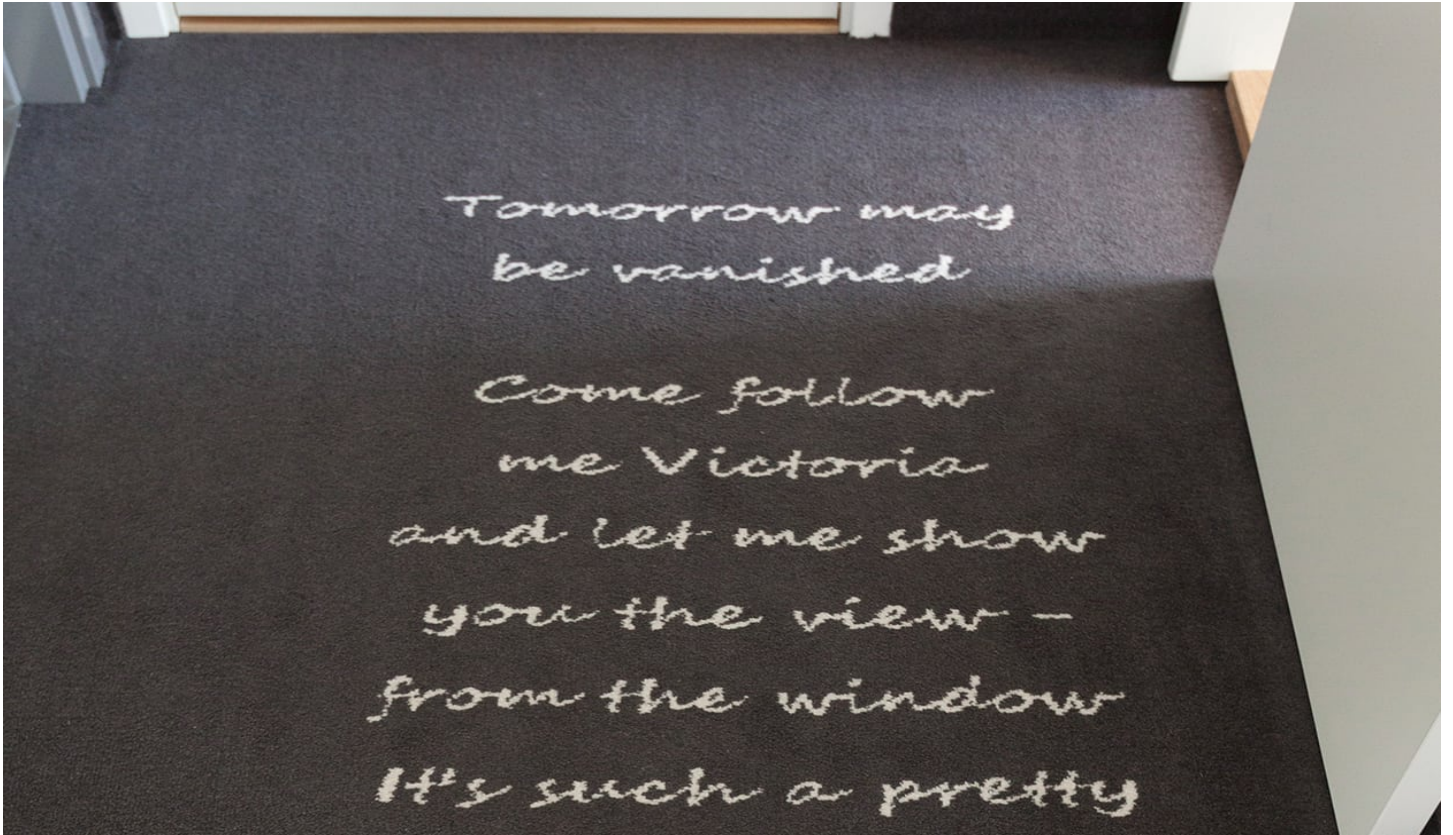 Tomorrow may
be vanished
Come follow
me Victoria
and let me show
you the view –
from the window
It's such a pretty